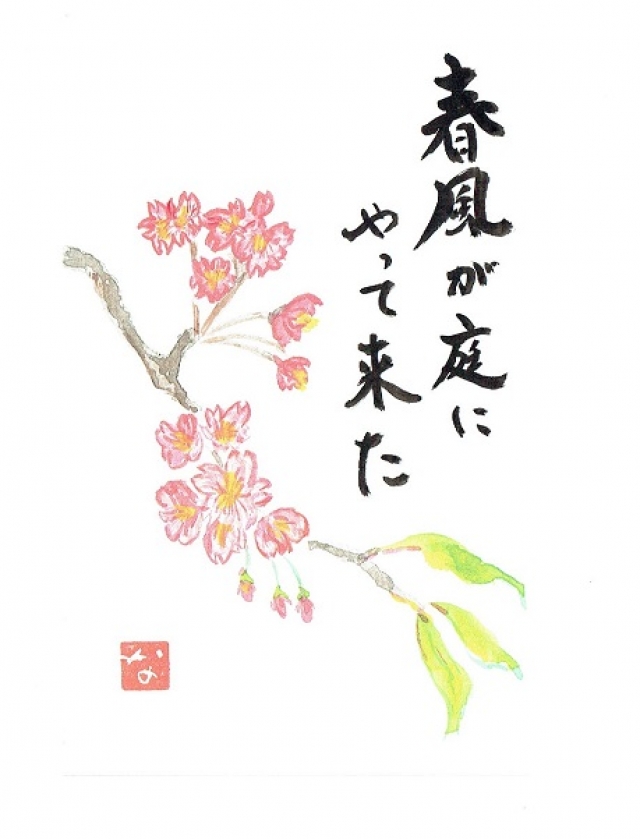 春風が庭に
やって来た
な